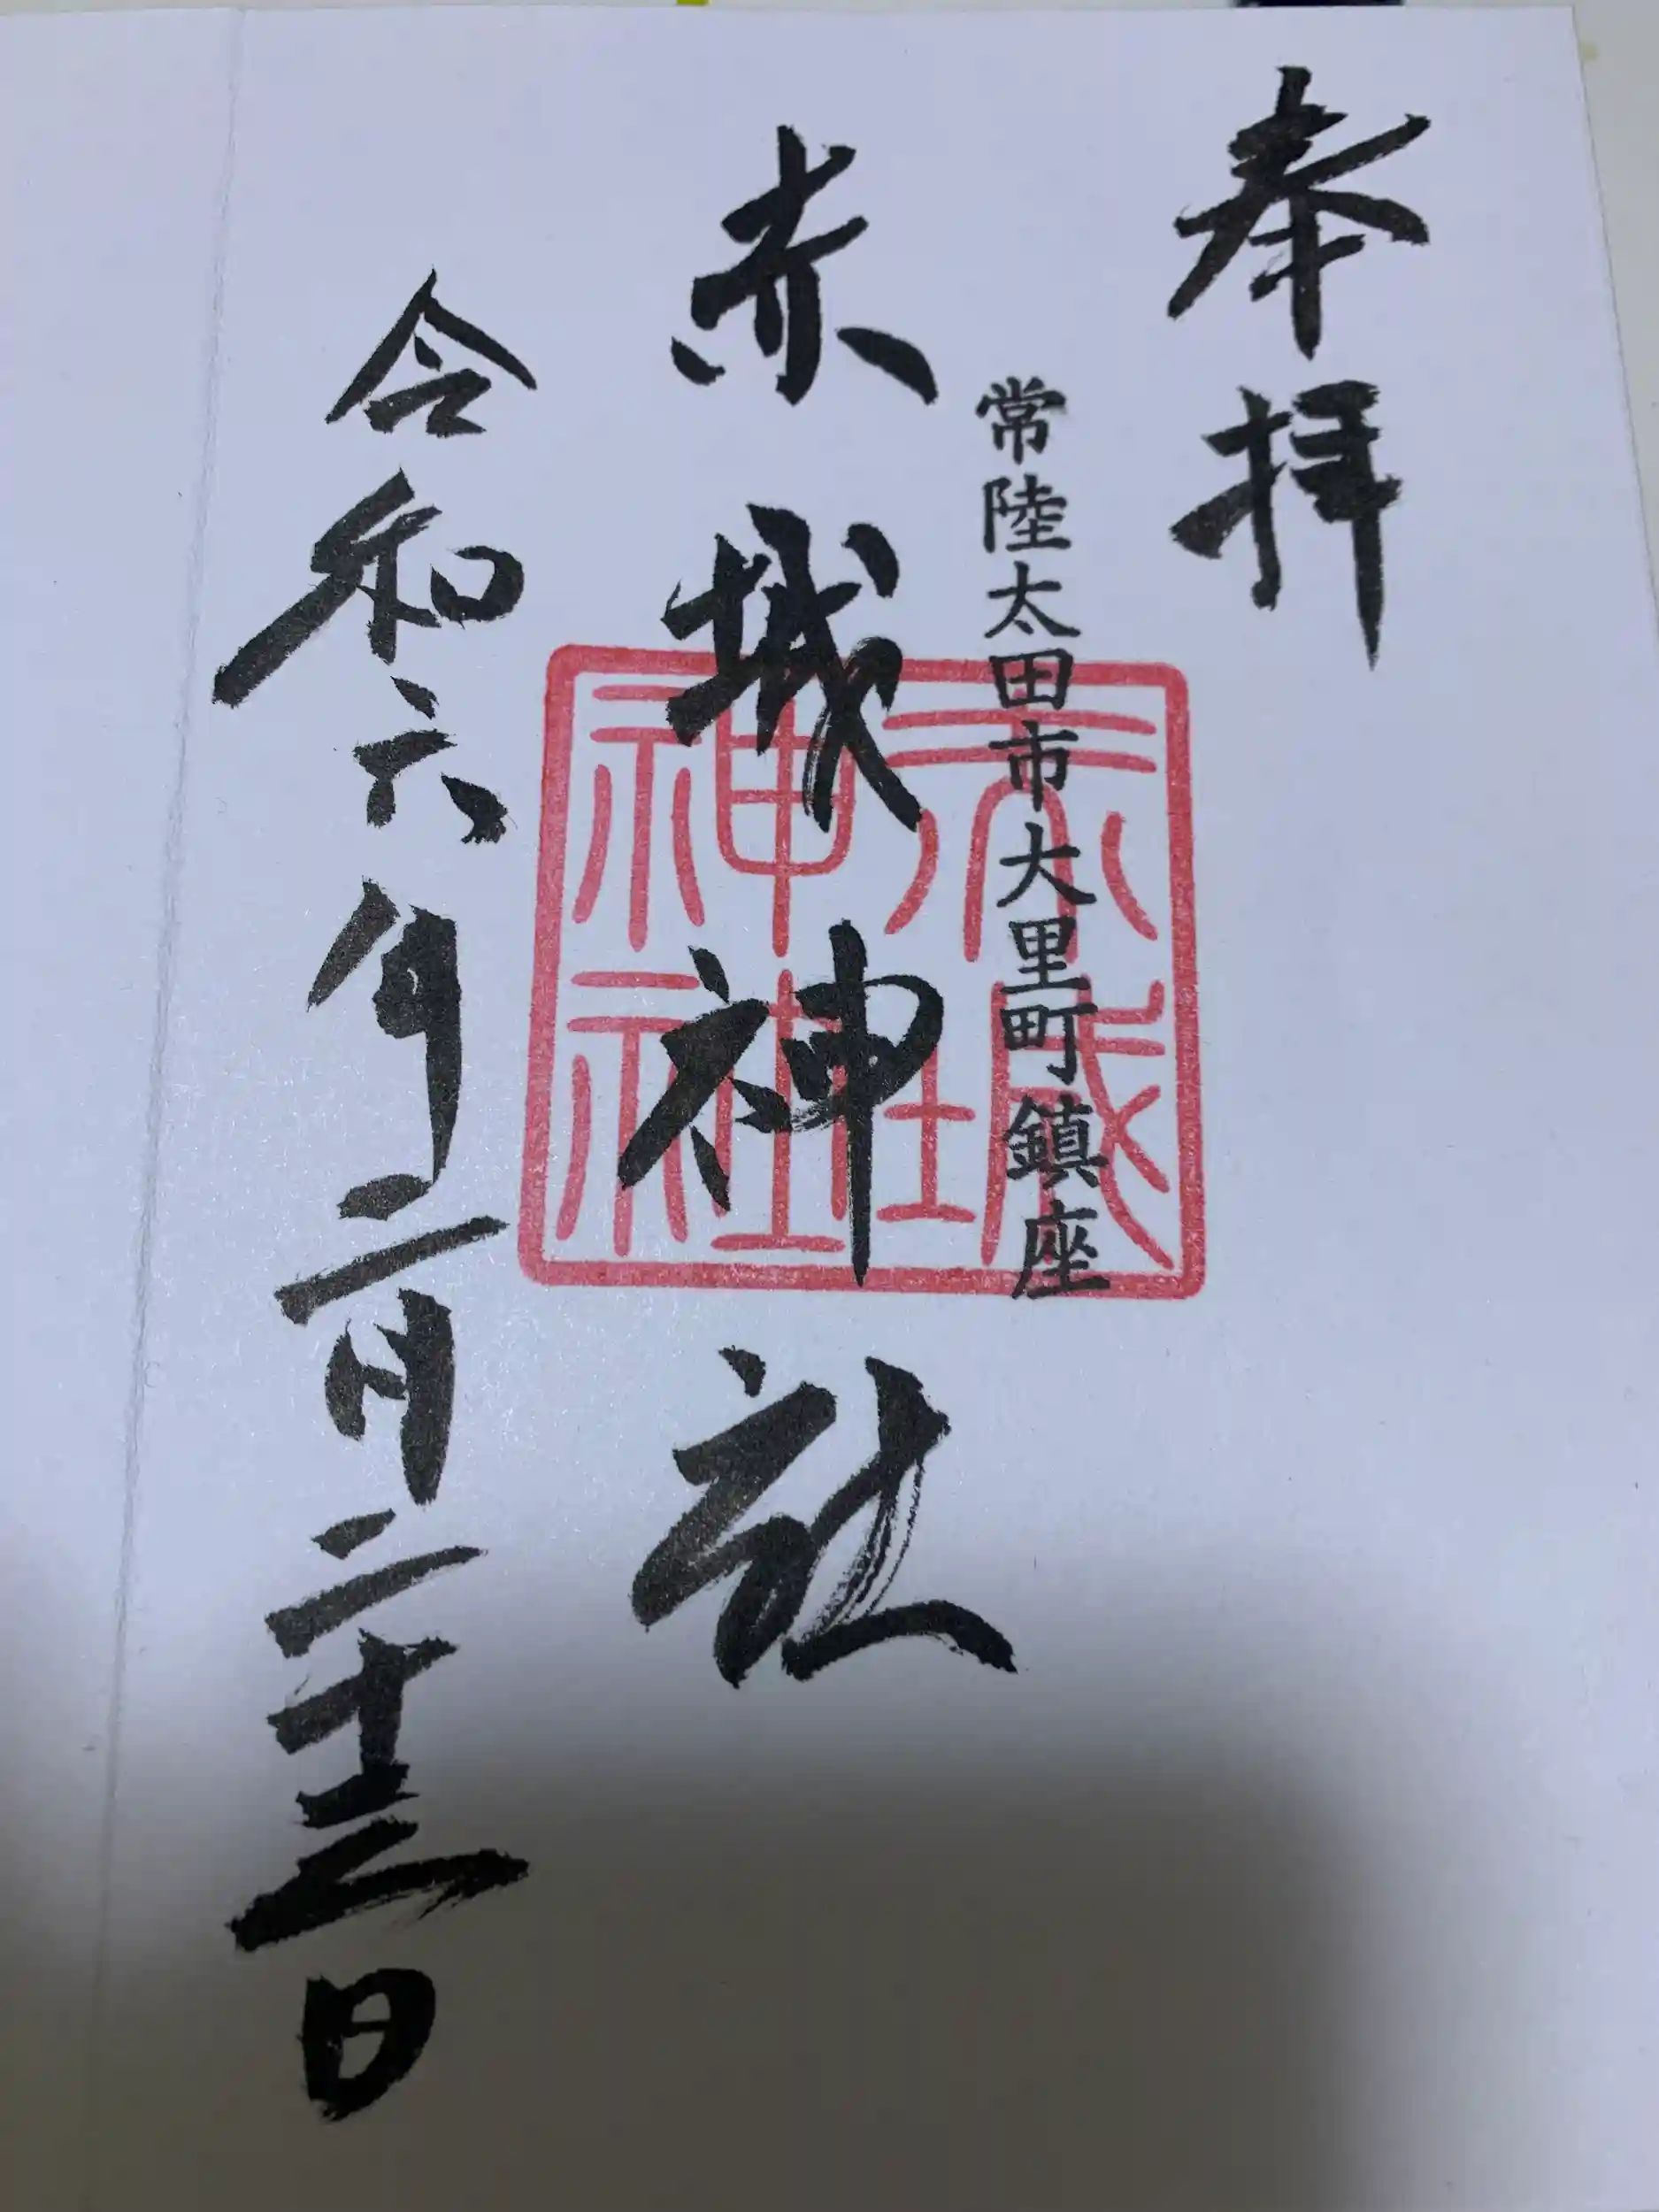 奉拝
常陸太田市大里町鎮座
赤城神社
赤城
神社
令和六年二月二十三日